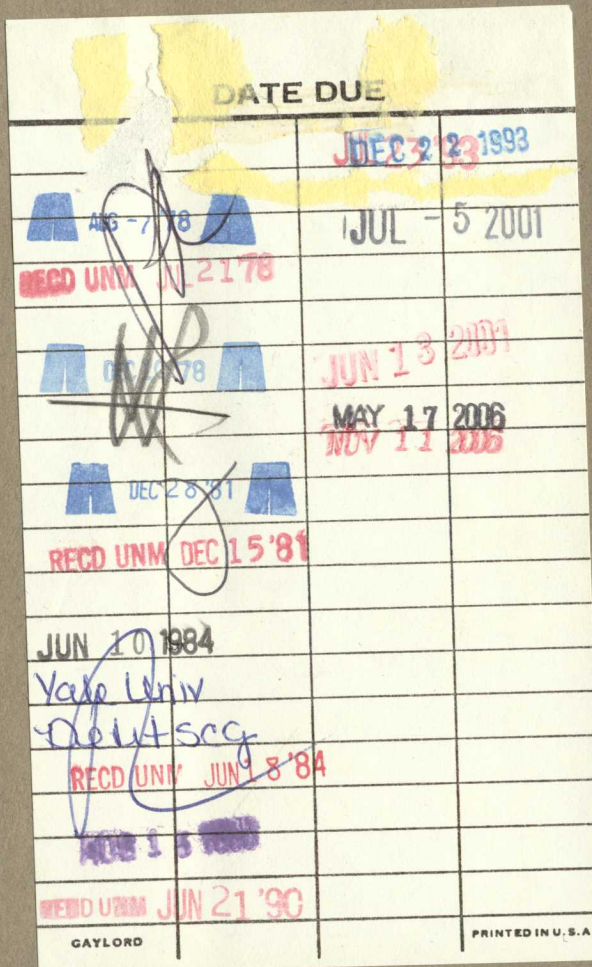 DATE DUE
AUG -7 '78
RECD UNM JUL 21 '78
78
DEC 28 '81
RECD UNM DEC 15 '81
JUN 10 1984
Yale Univ
RECD UNM JUN 18 '84
RECD UNM JUN 21 '90
DEC 22 1993
JUL - 5 2001
JUN 13 2001
MAY 17 2006
NOV 11 2006
GAYLORD
PRINTED IN U.S.A